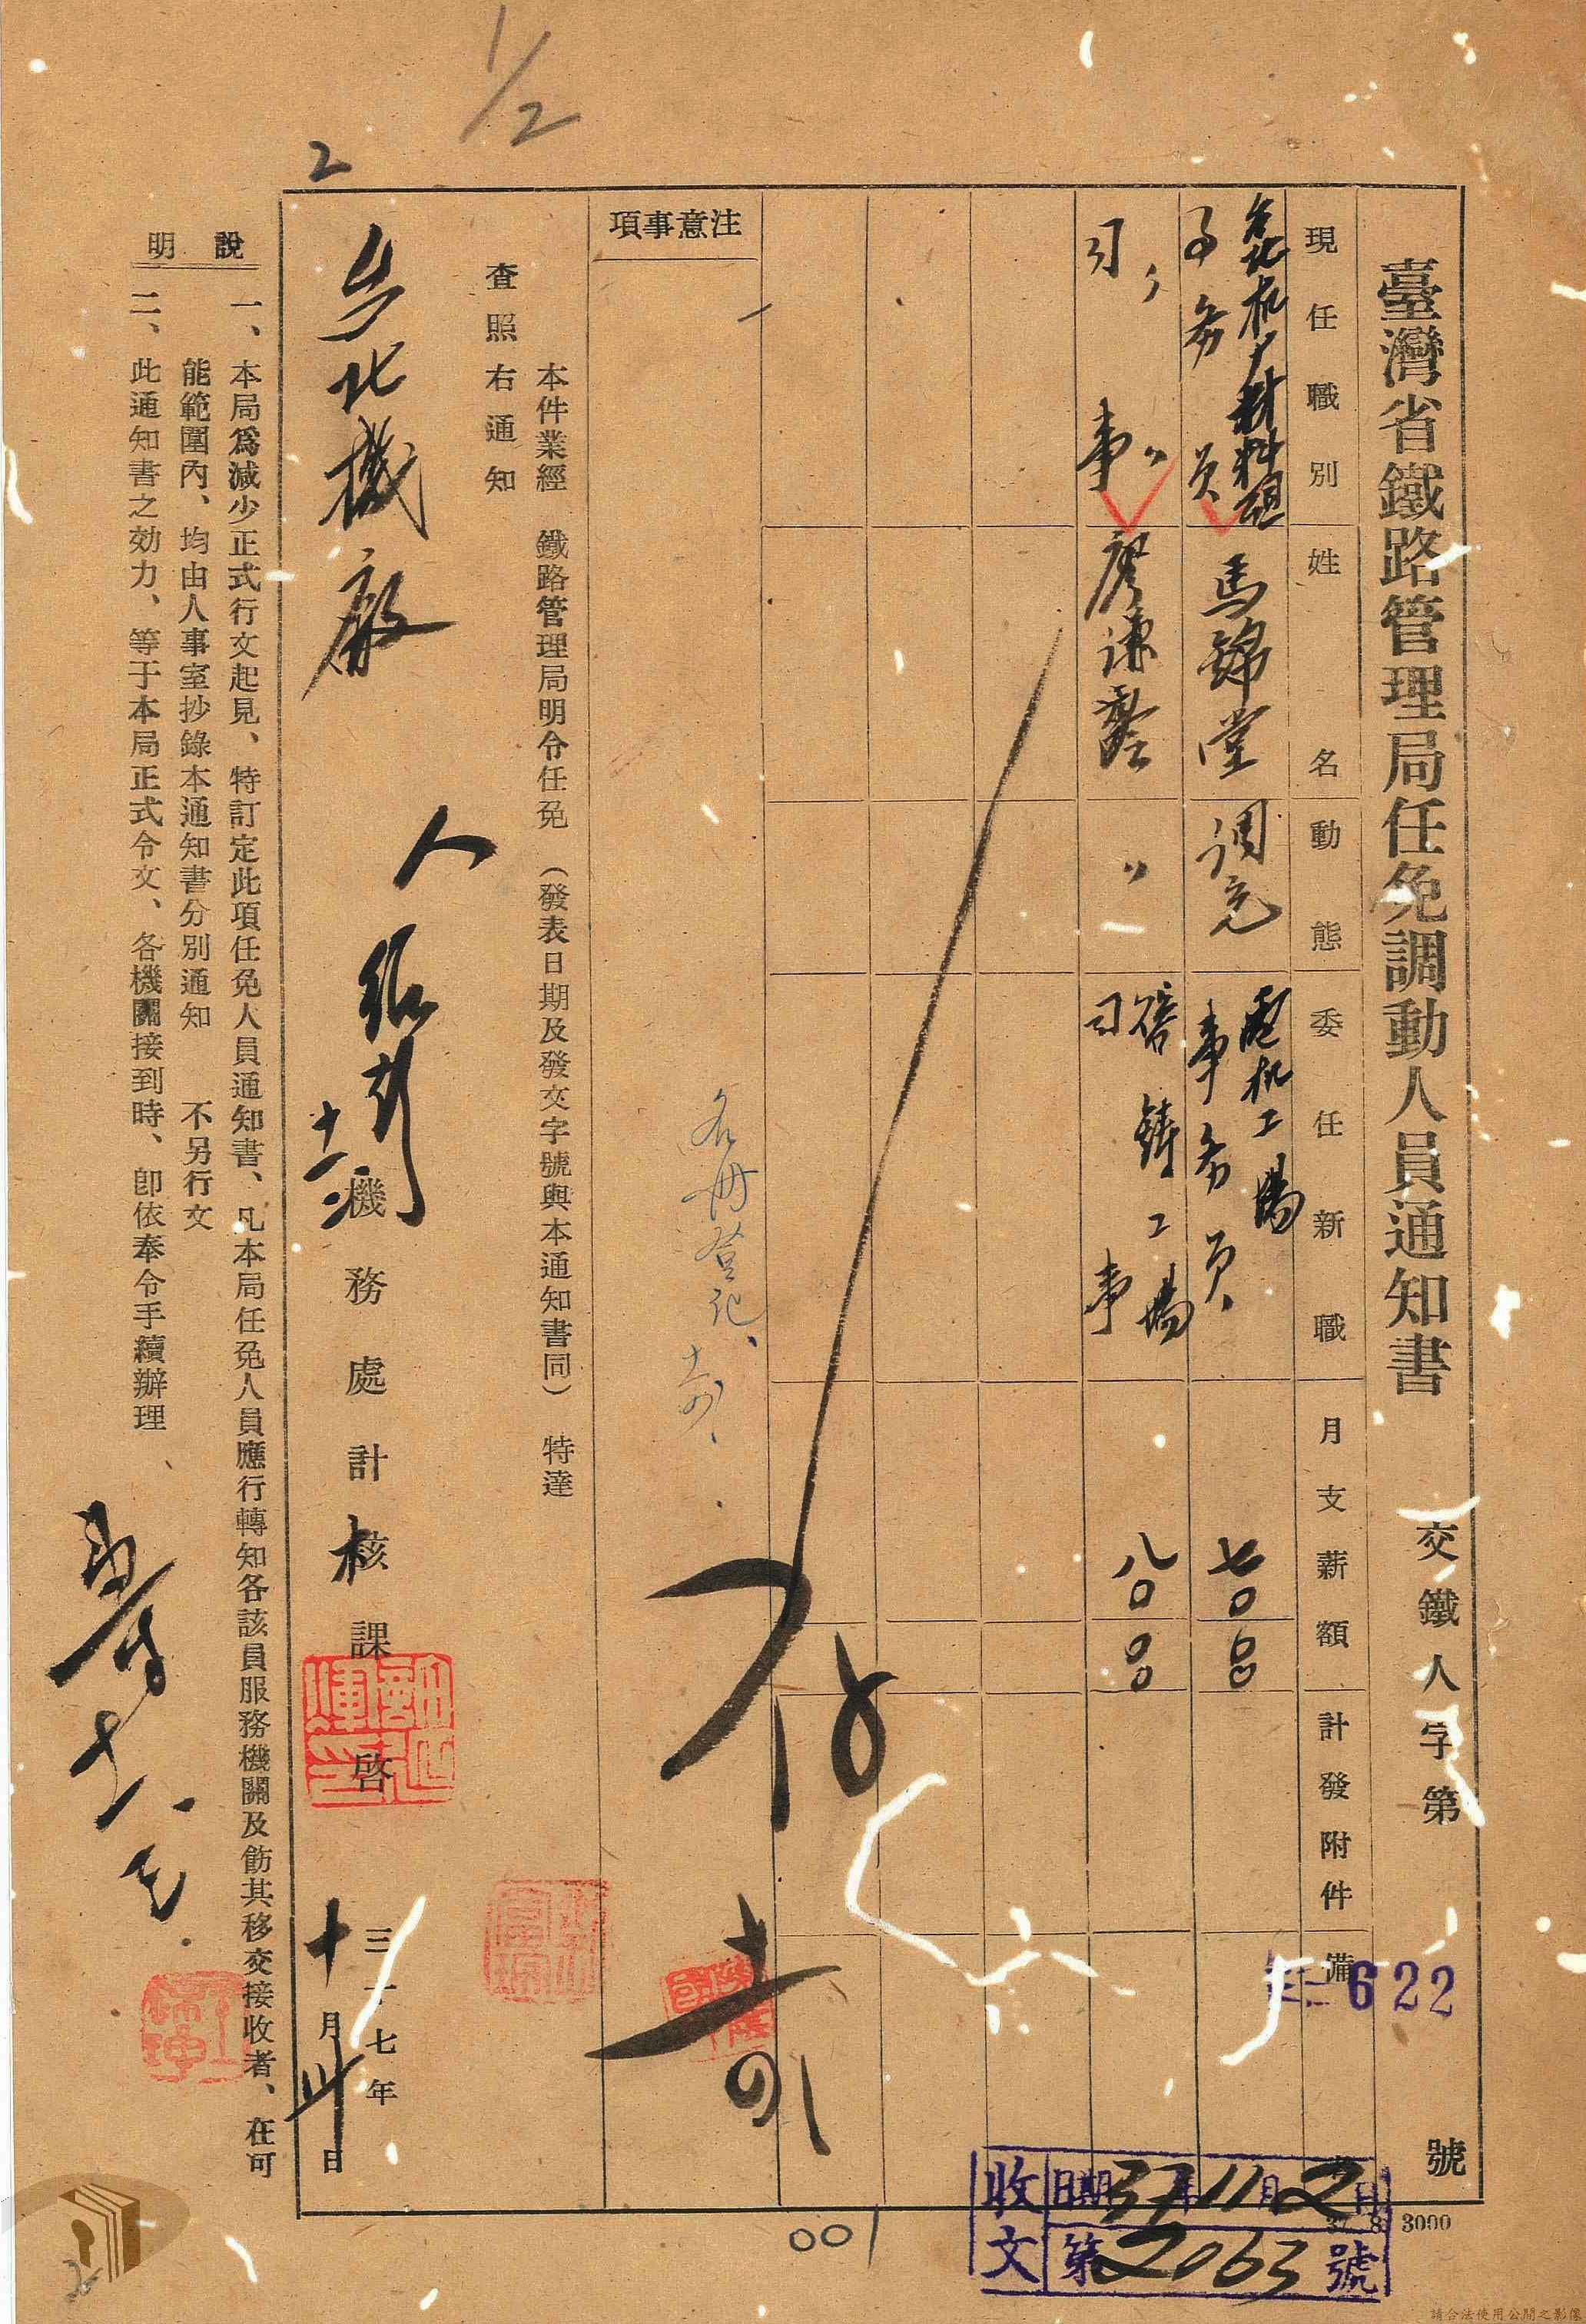 臺灣省鐵路管理局任免調動人員通知書
交鐵人字第
622
號
現任職別
姓名
動態
委任新職
月支薪額
計發附件
備
台北机厂材料組
事務員
馬錦堂
調充
電机工場
事务員
七〇
〃〃
司事
〃
鎔鑄工場
司事
八〇
注意事項
名冊登記、
存
本件業經 鐵路管理局明令任免 (發表日期及發文字號與本通知書同) 特達
查照右通知
台北機廠
機務處計核課啓
三十七年
十月
日
說明
一、本局爲減少正式行文起見、特訂定此項任免人員通知書、凡本局任免人員應行轉知各該員服務機關及飭其移交接收者、在可
能範圍內、均由人事室抄錄本通知書分別通知 不另行文
二、此通知書之効力、等于本局正式令文、各機關接到時、卽依奉令手續辦理
收文
日期37年11月2日
第2063號
37 8 3000
001
1/2
2
2
請合法使用公開之影像